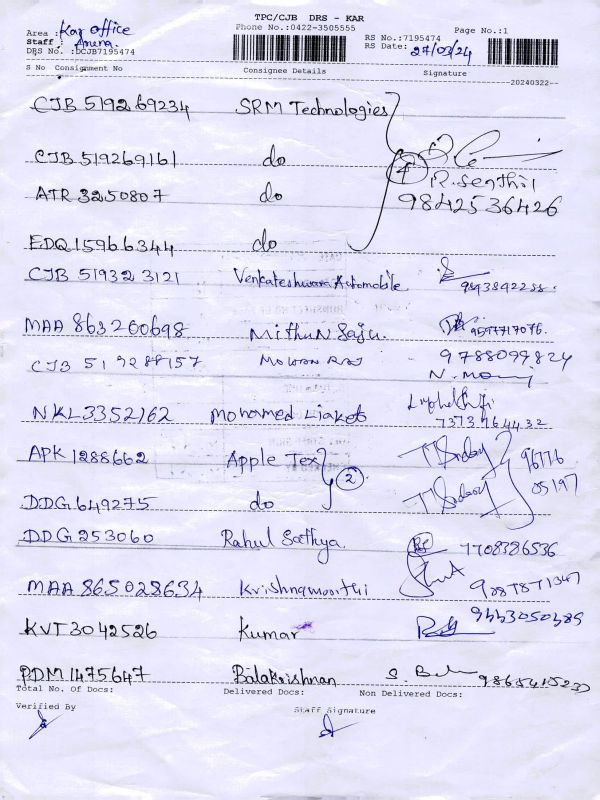 TPC/CJB DRS - KAR
Phone No.:0422-3505555
Area : Kar office
Staff : Aruna.
DRS No.:DCJB7195474
RS No.:7195474
RS Date: 27/03/24
Page No.:1
S No Consignment No Consignee Details Signature
20240322--
CJB 519269234 SRM Technologies
CJB 519269161 do
4
R. Senthil
ATR 3250807 do
9842536426
EDQ 15966344 do
CJB 51932 3121 Venkateshwara Automobile
MAA 863200698 Mithun Saju.
CJB 519288157 Mohan Raj 9788099824
NKL3352162 Mohamed Liakat
7373764432
APK 1288662 Apple Tex 96776
2
DDG 649275 do 05197
DDG 253060 Rahul Sathya. 7708386536
MAA 865028634 Krishnamoorthi
KVT3042526 Kumar 9443050389
PDM1475647 Balakrishnan
Total No. Of Docs: Delivered Docs: Non Delivered Docs:
Verified By Staff Signature